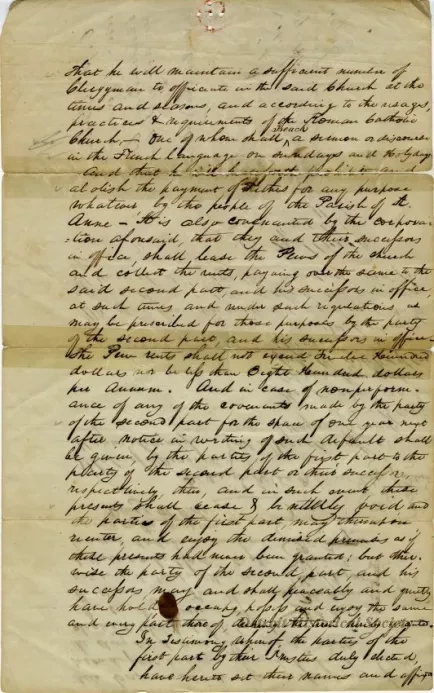 that he will maintain a sufficient number of
Clergymen to officiate in the said Church at the
times and seasons, and according to the usages,
practices & requirements of the Roman Catholic
Church,— One of whom shall preach a sermon or discourse
in the French Language on Sundays and Holydays
And that he will henceforth prohibit and
abolish the payment of Tithes for any purpose
whatever by the people of the Parish of St.
Anne — It is also covenanted by the corpora-
:tion aforesaid, that they and their successors
in office, shall lease the Pews of the church
and collect the rents, paying over the same to the
said second part, and his successors in office,
at such times and under such regulations, as
may be prescribed for those purposes by the party
of the second part, and his successors in office—
The Pew rents shall not exceed Twelve Hundred
dollars nor be less than Eight Hundred dollars
per Annum. And in case of nonperform-
ance of any of the covenants made by the party
of the second part for the space of one year next
after notice in writing of such default shall
be given by the parties of the first part to the
party of the second part or their successors,
respectively, then, and in such event these
presents shall cease & be utterly void and
the parties of the first part, may thereupon
reenter, and enjoy the demised premises as if
these presents had never been granted; but other-
wise the party of the second part, and his
successors may and shall peaceably and quietly
have hold occupy, possess and enjoy the same
and every part thereof
In Testimony whereof the parties of the
first part by their Trustees duly elected,
have hereto set their names and affixed